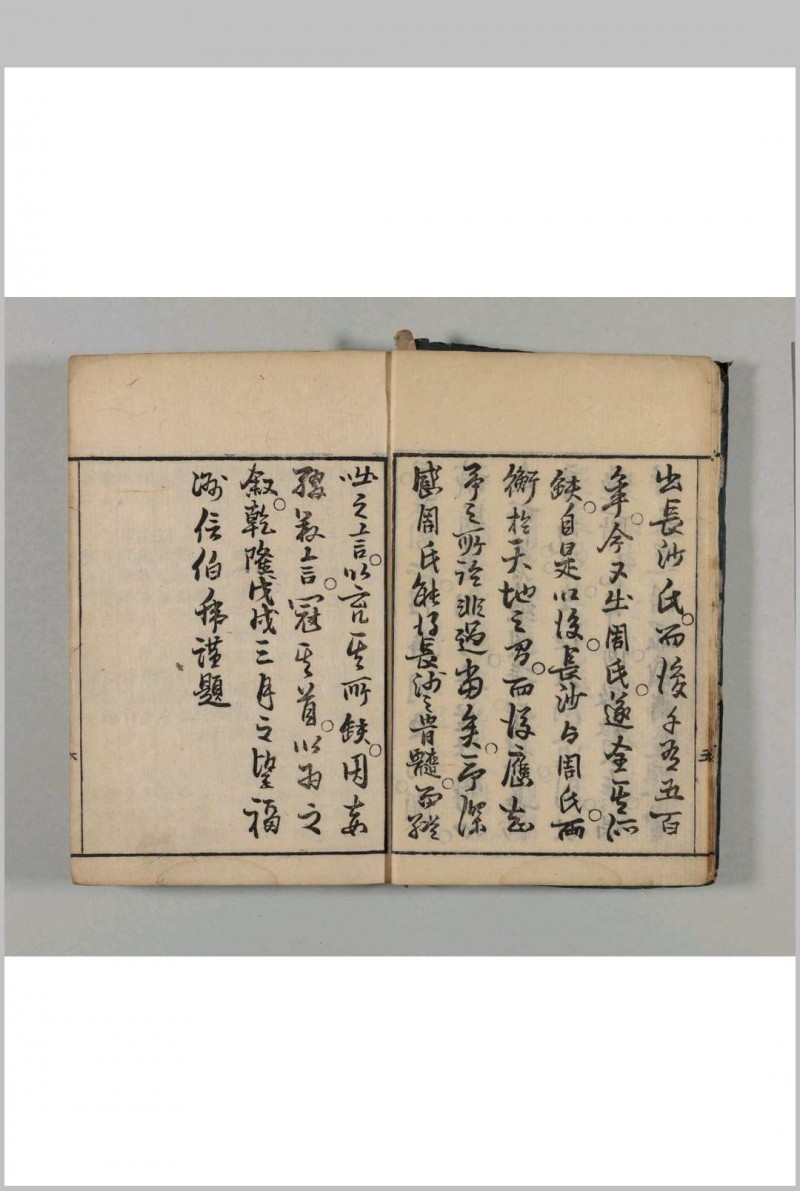 出長沙氏而後千有五百
年今又出周氏遂全其所
缺自是以後長沙与周氏両
衡於天地之間而後應知
予之所論非過当矣予深
感周氏能得長沙之骨髄而
之言以言其所缺因妄
言冠其首以為之
叙乾隆戊戌三月之望福
洲信伯 謹題
五
六